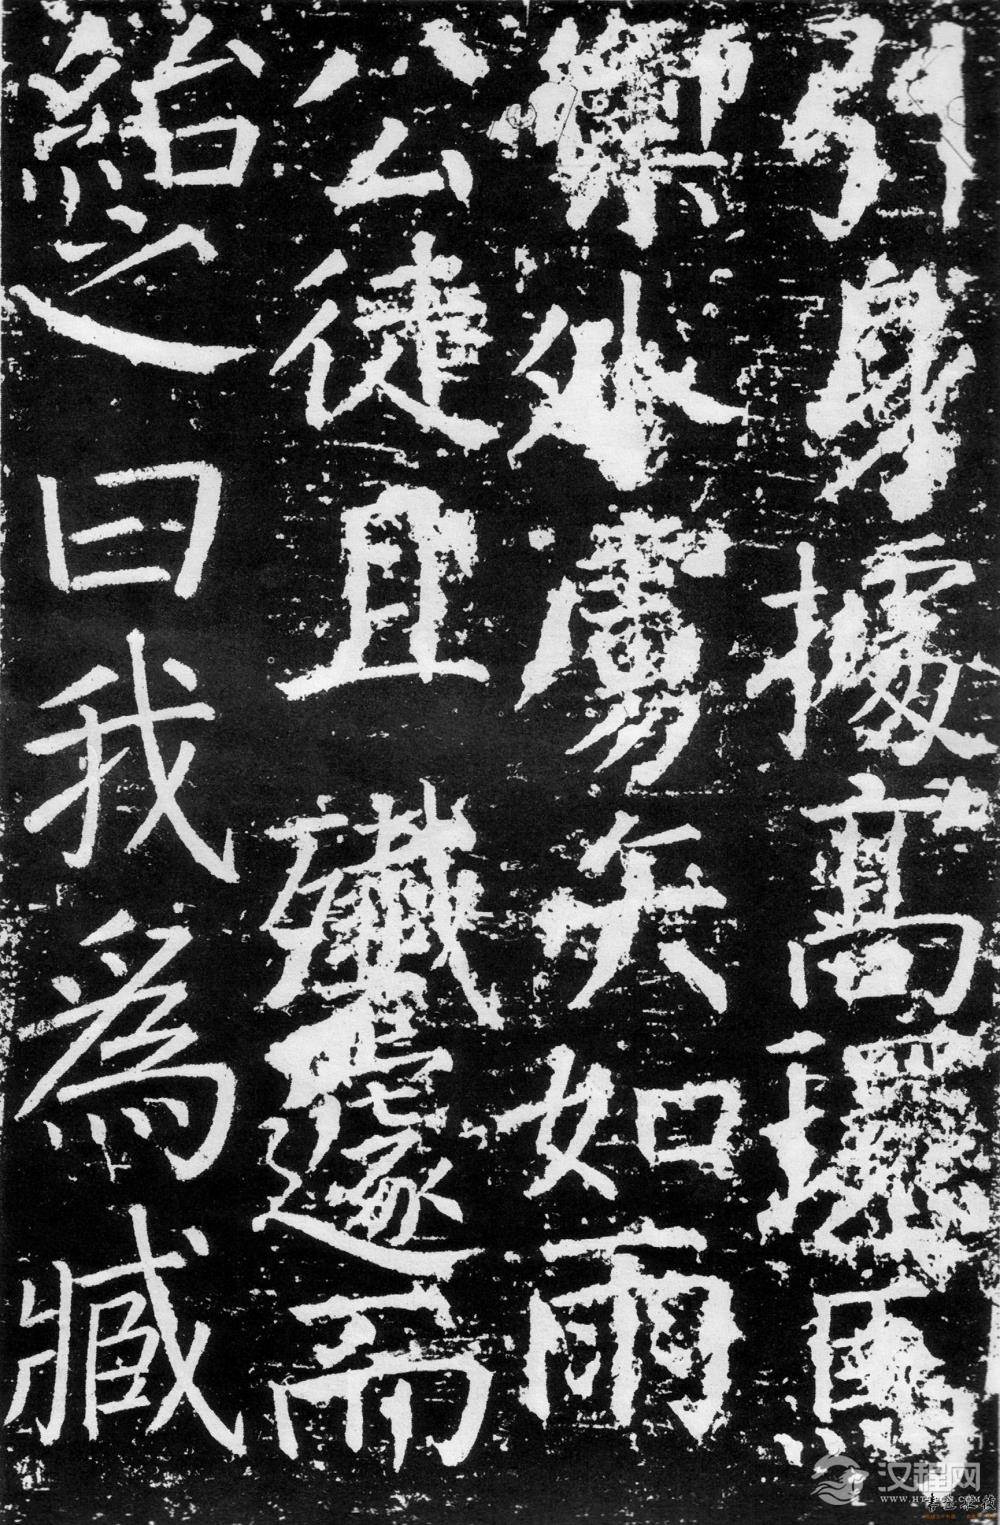 引身據高環馬
禦外虜矢如雨
公徒且殲遽而
紿之曰我為臧
汉程网
WWW.HTTPCN.COM